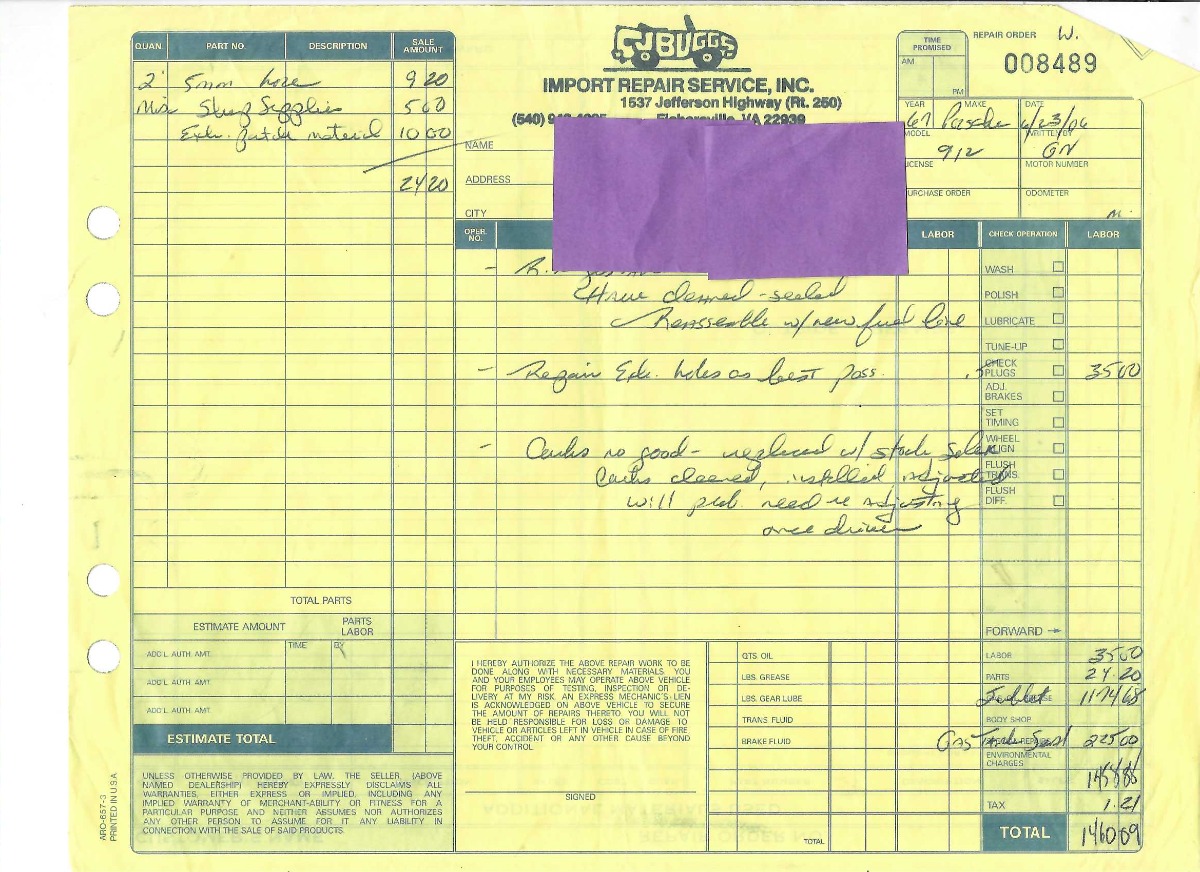 CJ BUGGS
IMPORT REPAIR SERVICE, INC.
1537 Jefferson Highway (Rt. 250)
(540) Fishersville, VA 22939
TIME PROMISED
AM
PM
REPAIR ORDER W.
008489
YEAR MAKE DATE
67 Porsche 6/23/06
MODEL WRITTEN BY
912 GN
LICENSE MOTOR NUMBER
PURCHASE ORDER ODOMETER
NAME
ADDRESS
CITY
QUAN. PART NO. DESCRIPTION SALE AMOUNT
2' 5mm hose 9 20
Misc Shop Supplies 5 00
Exh. patch material 10 00
24 20
TOTAL PARTS
ESTIMATE AMOUNT PARTS LABOR
TIME BY
ADD'L. AUTH. AMT.
ADD'L. AUTH. AMT.
ADD'L. AUTH. AMT.
ESTIMATE TOTAL
UNLESS OTHERWISE PROVIDED BY LAW, THE SELLER, (ABOVE
NAMED DEALERSHIP) HEREBY EXPRESSLY DISCLAIMS ALL
WARRANTIES, EITHER EXPRESS OR IMPLIED, INCLUDING ANY
IMPLIED WARRANTY OF MERCHANT-ABILITY OR FITNESS FOR A
PARTICULAR PURPOSE AND NEITHER ASSUMES NOR AUTHORIZES
ANY OTHER PERSON TO ASSUME FOR IT ANY LIABILITY IN
CONNECTION WITH THE SALE OF SAID PRODUCTS.
ARO-657-3
PRINTED IN U.S.A
OPER. NO. LABOR CHECK OPERATION LABOR
- R.
Have cleaned - sealed
Reassemble w/ new fuel line
- Repair Exh. holes as best poss. 35 00
- Carbs no good - replaced w/ stock Solex
Carbs cleaned, installed, adjusted
will prob. need re adjusting
once driven
WASH
POLISH
LUBRICATE
TUNE-UP
CHECK PLUGS
ADJ. BRAKES
SET TIMING
WHEEL ALIGN
FLUSH TRANS.
FLUSH DIFF.
FORWARD
I HEREBY AUTHORIZE THE ABOVE REPAIR WORK TO BE
DONE ALONG WITH NECESSARY MATERIALS. YOU
AND YOUR EMPLOYEES MAY OPERATE ABOVE VEHICLE
FOR PURPOSES OF TESTING, INSPECTION OR DE-
LIVERY AT MY RISK. AN EXPRESS MECHANIC'S LIEN
IS ACKNOWLEDGED ON ABOVE VEHICLE TO SECURE
THE AMOUNT OF REPAIRS THERETO. YOU WILL NOT
BE HELD RESPONSIBLE FOR LOSS OR DAMAGE TO
VEHICLE OR ARTICLES LEFT IN VEHICLE IN CASE OF FIRE,
THEFT, ACCIDENT OR ANY OTHER CAUSE BEYOND
YOUR CONTROL.
SIGNED
QTS. OIL
LBS. GREASE
LBS. GEAR LUBE
TRANS FLUID
BRAKE FLUID
TOTAL
LABOR 35 00
PARTS 24.20
Sublet 1174 68
BODY SHOP
Gas Tank Seal 225 00
ENVIRONMENTAL CHARGES
1458 88
TAX 1.21
TOTAL 1460 09